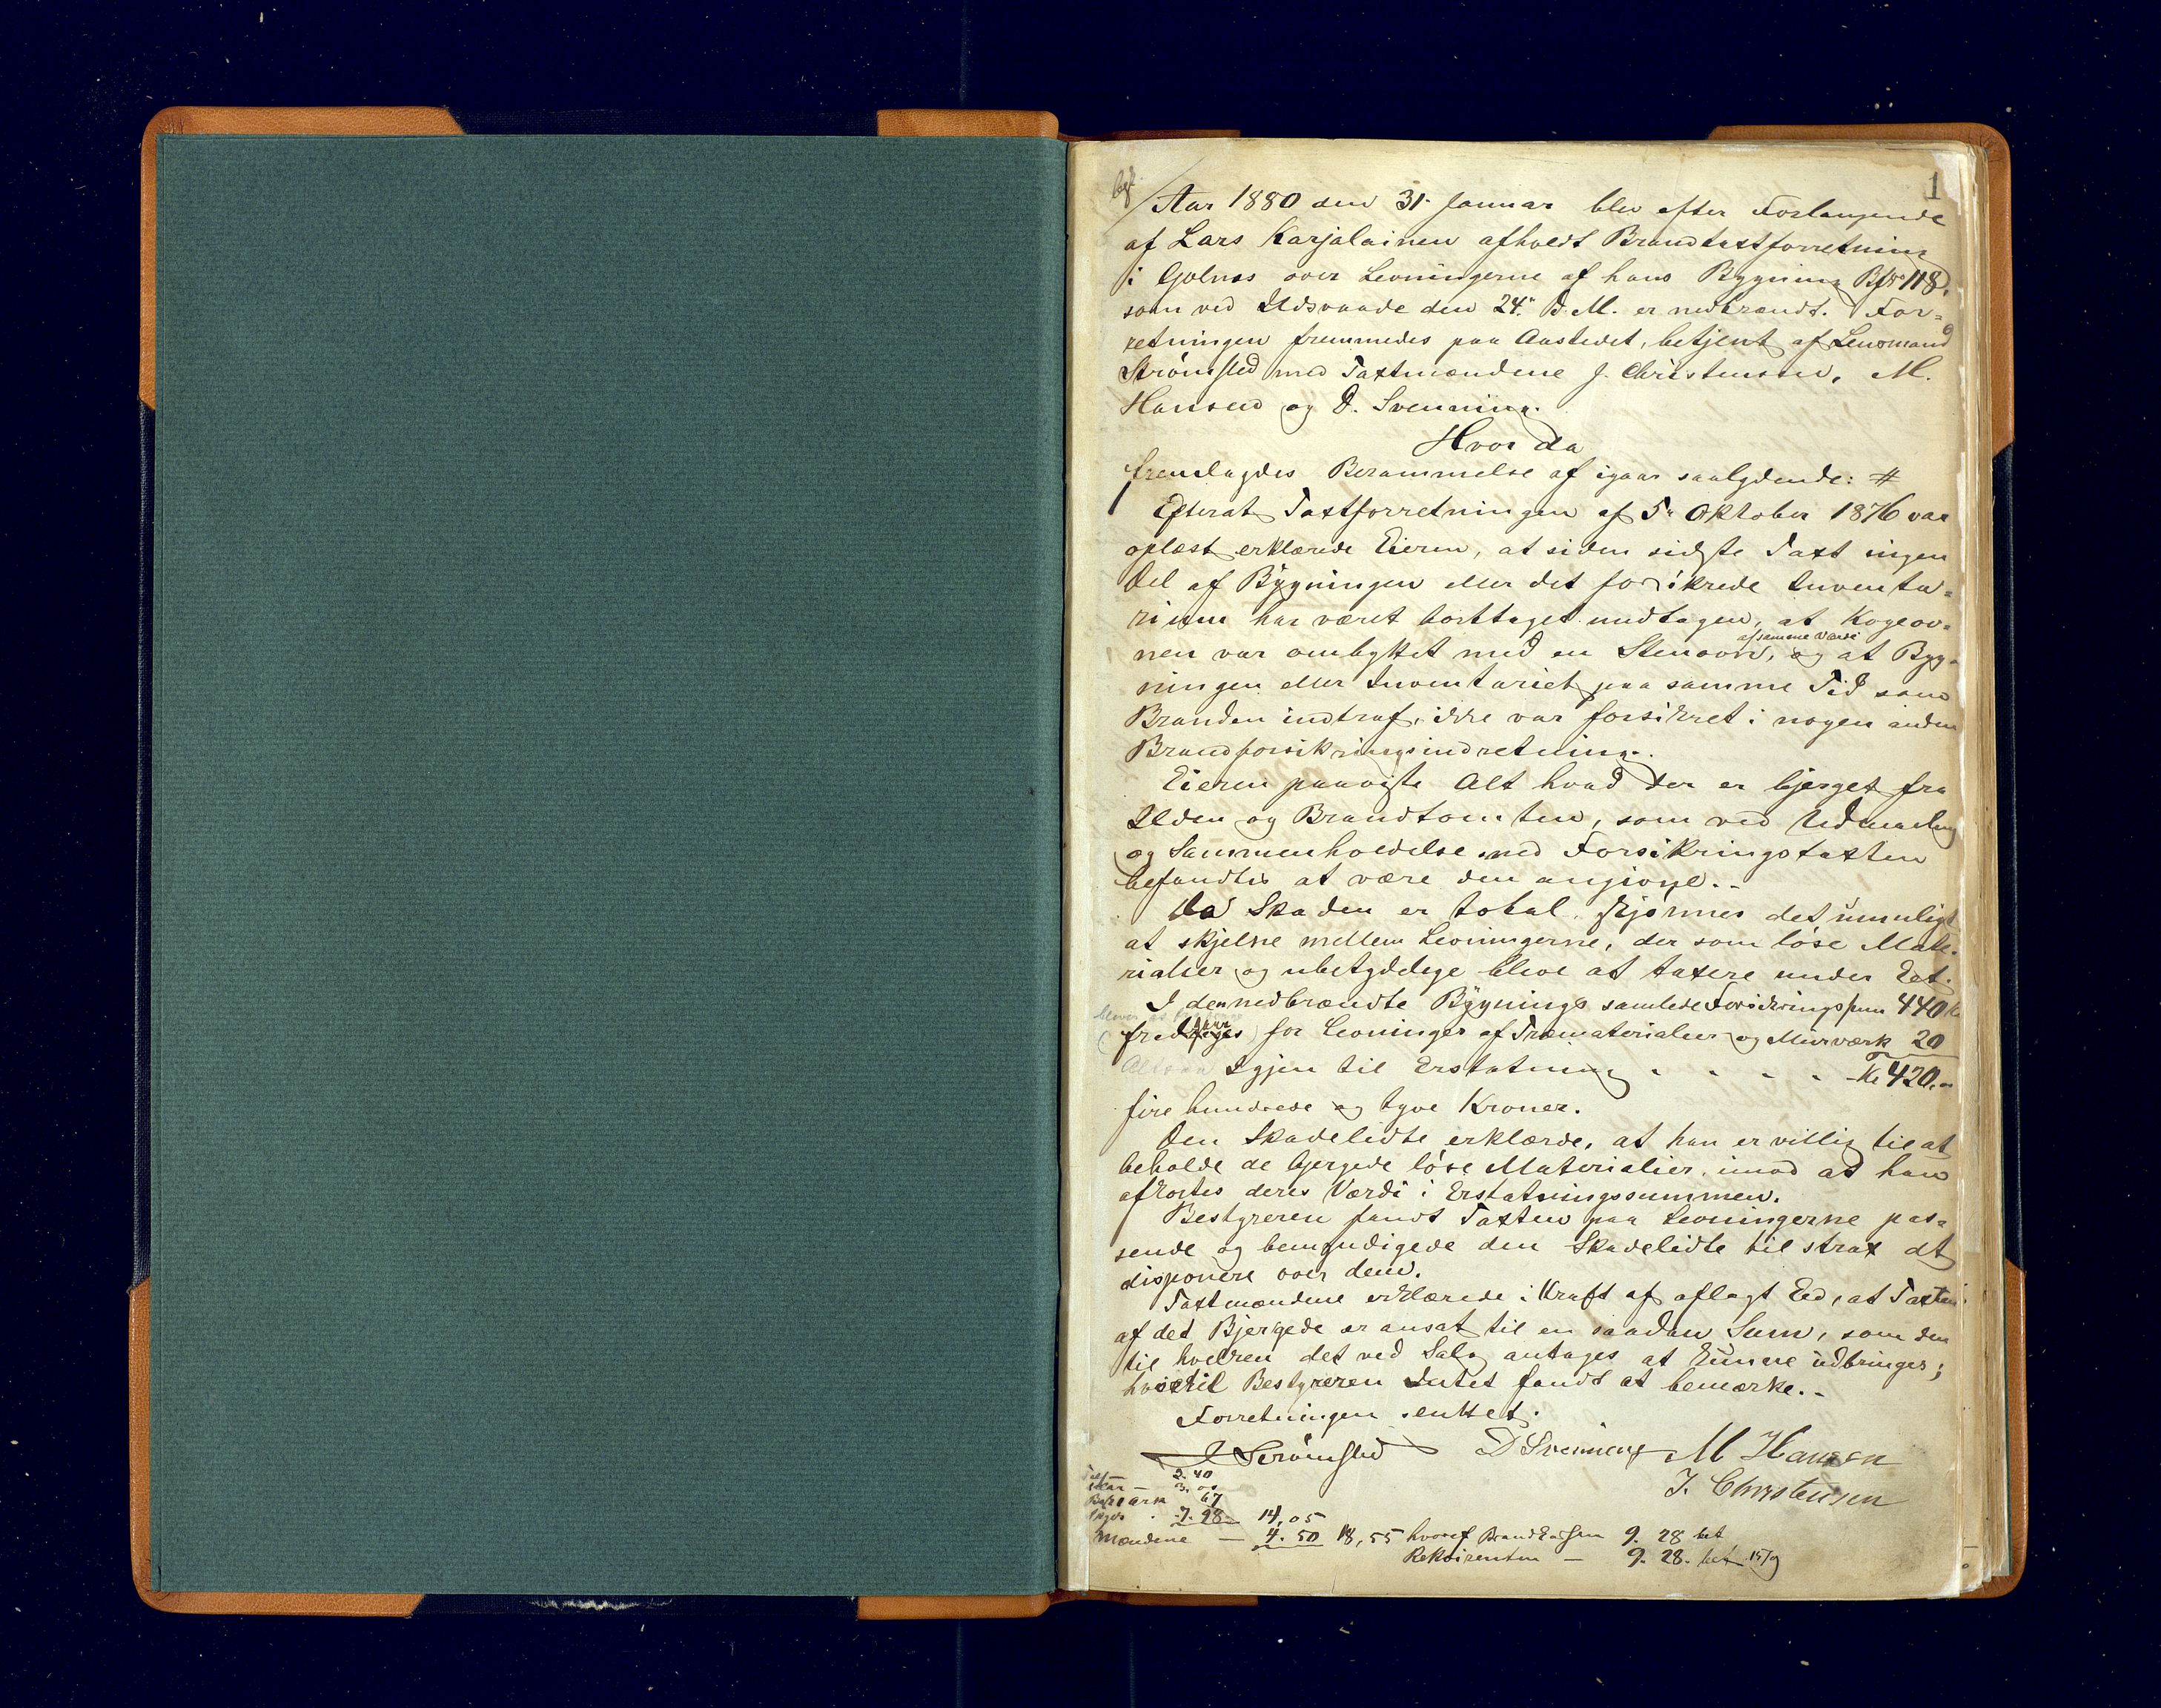 1
Aar 1880 den 31. Januar blev efter Forlangende
af Lars Karjalainen afholdt Brandtaxtforretning
i Golnes over Levningerne af hans Bygning Bfn 118,
som ved Ildsvaade den 24. d. M. er nedbrændt. For=
retningen fremmedes paa Aastedet, betjent af Lensmand
Strømsted med Taxtmændene J. Christensen, M.
Hansen og D. Svenning.
Hvor da
fremlagdes Berammelse af igaar saalydende: #
Efterat Taxtforretningen af 5. Oktober 1876 var
oplæst erklærede Eieren, at siden sidste Taxt ingen
Del af Bygningen eller det forsikrede Inventa=
rium har været borttaget undtagen, at Kogeov=
nen var ombyttet med en Stenovn, af samme Værdi og at Byg=
ningen eller Inventariet paa samme Tid som
Branden indtraf, ikke var forsikret i nogen anden
Brandforsikringsindretning.
Eieren paaviste Alt hvad der er bjerget fra
Ilden og Brandtomten, som ved Udmaaling
og Sammenholdelse med Forsikringstaxten
befandtes at være den angivne.-
Da Skaden er total, skjønnes det umuligt
at skjelne mellem Levningerne, der som løse Mate=
rialier og ubetydelige bleve at taxere under Eet.
I den nedbrændte Bygnings samlede Forsikringssum 440 Kr
fradrages for Levninger af Træmaterialier og Murværk 20
Igjen til Erstatning - - - - Kr 420.-
fire hundrede og tyve Kroner.
Den Skadelidte erklærde, at han er villig til at
beholde de bjergede løse Materialier imod at han
afkortes deres Værdi i Erstatningssummen.
Bestyreren fandt Taxten paa Levningerne pas=
sende og bemyndigede den Skadelidte til strax at
disponere over dem.
Taxtmændene erklærede i Kraft af aflagt Eed, at Taxten
af det Bjergede er ansat til en saadan Sum, som den
til hvilken det ved Salg antages at kunne udbringes;
hvortil Bestyreren Intet fandt at bemærke.-
Forretningen sluttet.
Strømsted D Svenning M Hansen
J. Christensen
2.40
3.00
67
7.98 14,05
Mændene — 4.50 18,55 hvoraf Brandkassen 9.28 bet
Rekvirenten — 9.28. bet 15/9